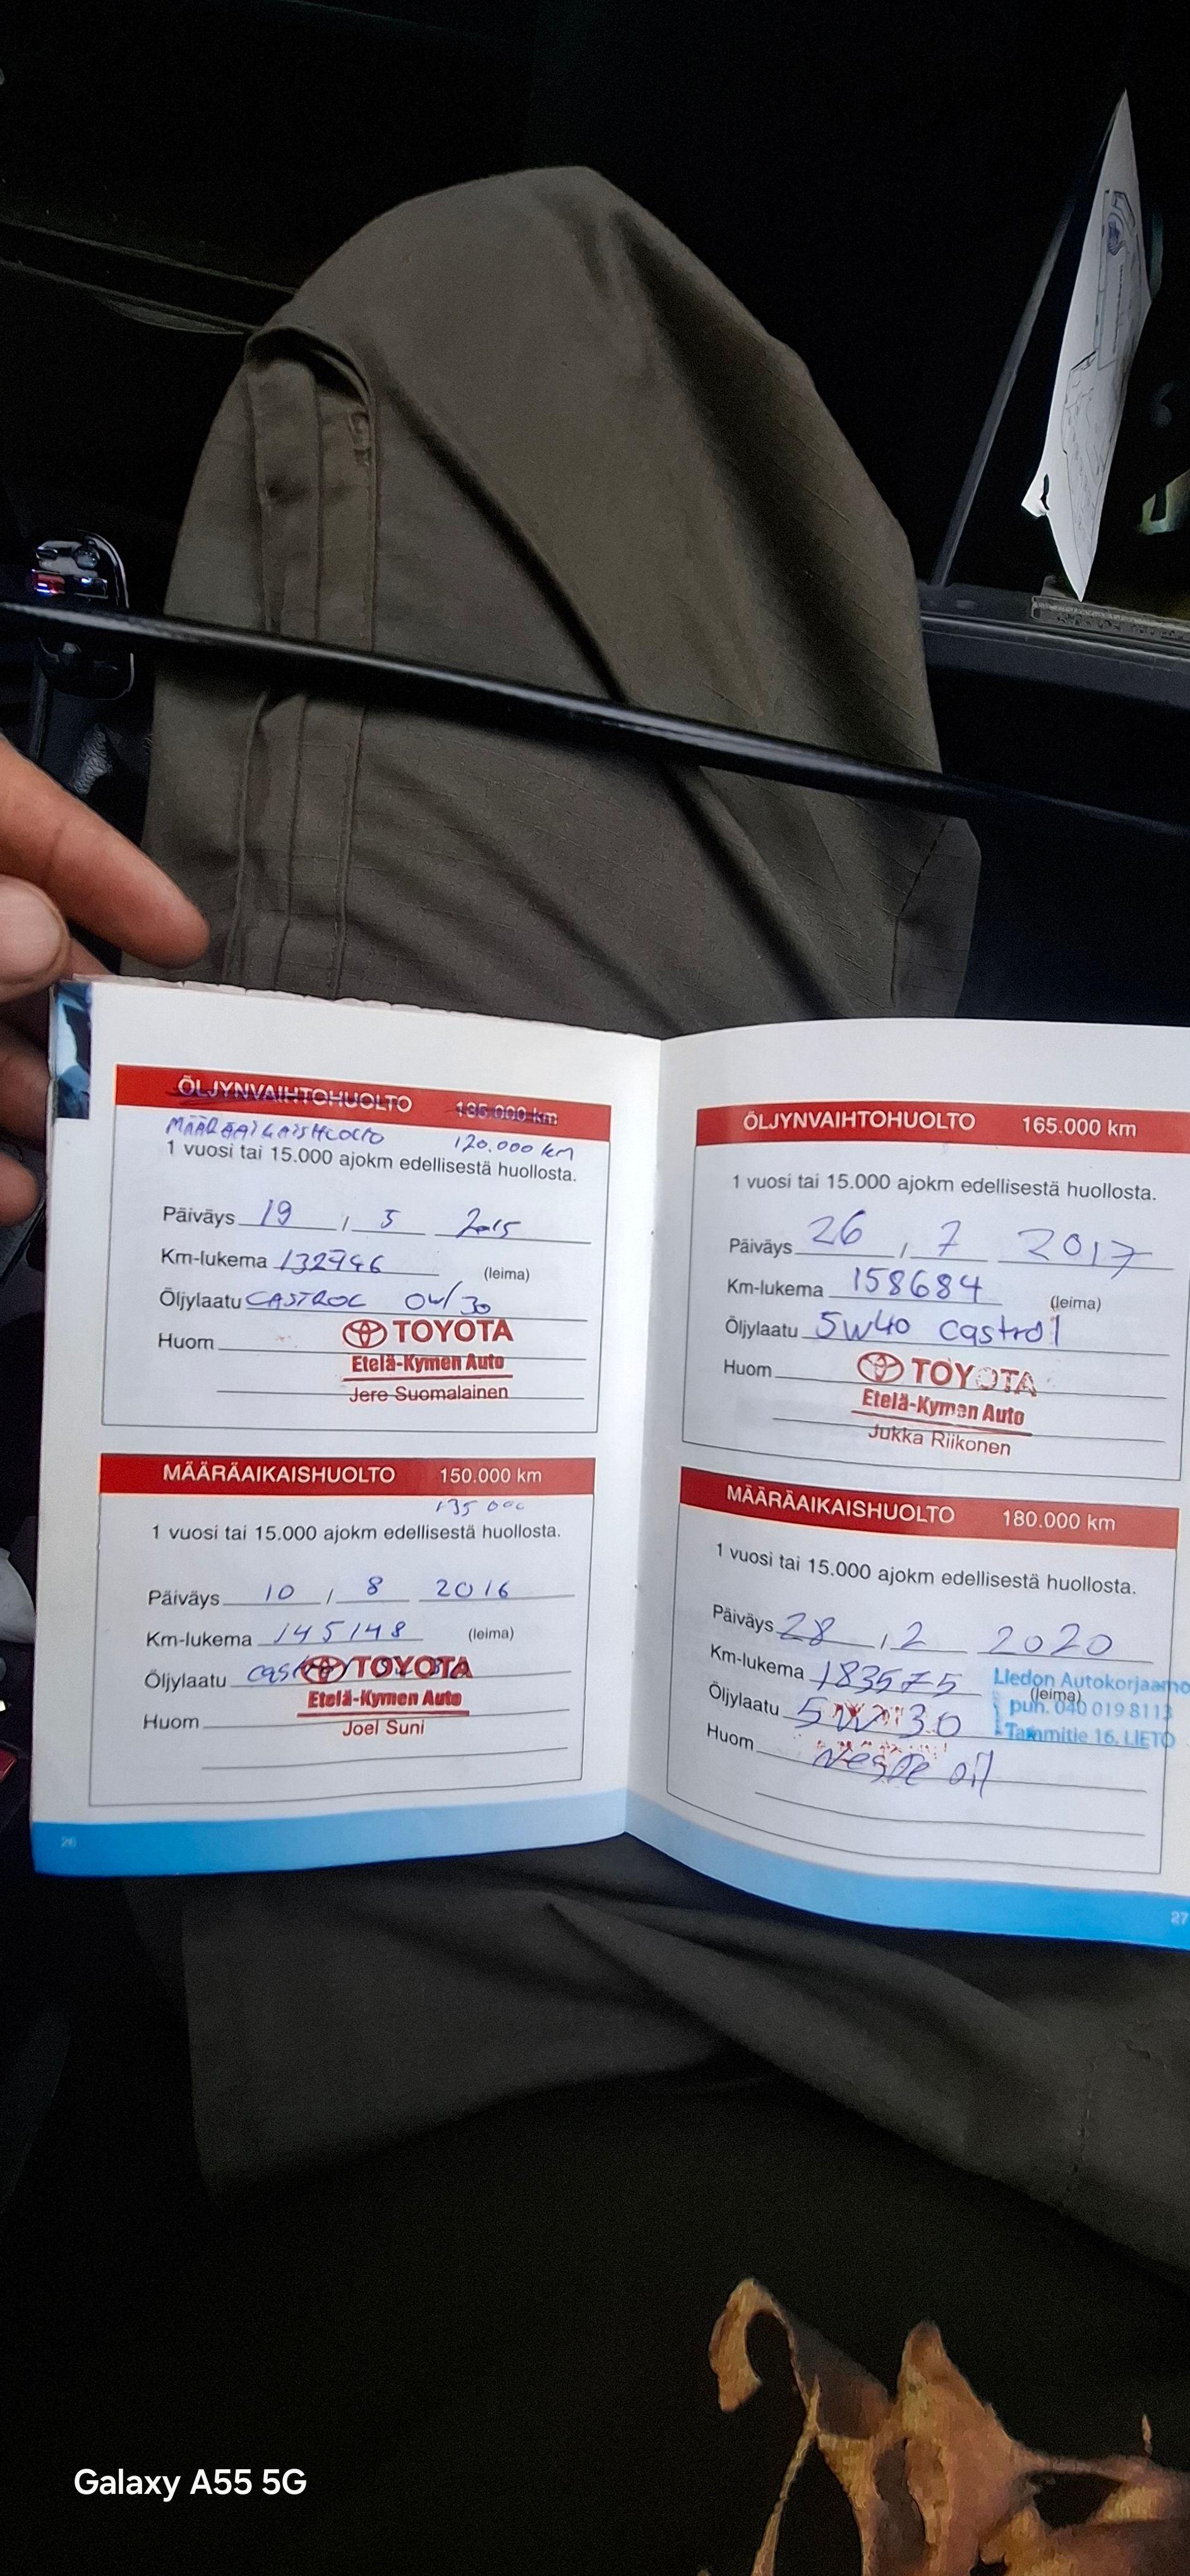 ÖLJYNVAIHTOHUOLTO 135.000 km
MÄÄRÄAIKAISHUOLTO 120.000 km
1 vuosi tai 15.000 ajokm edellisestä huollosta.
Päiväys 19 / 5 2015
Km-lukema 132746 (leima)
Öljylaatu CASTROL 0W/30
Huom
TOYOTA
Etelä-Kymen Auto
Jere Suomalainen
MÄÄRÄAIKAISHUOLTO 150.000 km
135 000
1 vuosi tai 15.000 ajokm edellisestä huollosta.
Päiväys 10 / 8 2016
Km-lukema 145148 (leima)
Öljylaatu
TOYOTA
Etelä-Kymen Auto
Huom
Joel Suni
26
ÖLJYNVAIHTOHUOLTO 165.000 km
1 vuosi tai 15.000 ajokm edellisestä huollosta.
Päiväys 26 / 7 2017
Km-lukema 158684 (leima)
Öljylaatu 5W40 Castrol
Huom
TOYOTA
Etelä-Kymen Auto
Jukka Riikonen
MÄÄRÄAIKAISHUOLTO 180.000 km
1 vuosi tai 15.000 ajokm edellisestä huollosta.
Päiväys 28 / 2 2020
Km-lukema 183575 (leima)
Liedon Autokorjaamo
puh. 040 019 8113
Tammitie 16, LIETO
Öljylaatu 5W30
Huom Neste oil
27
Galaxy A55 5G